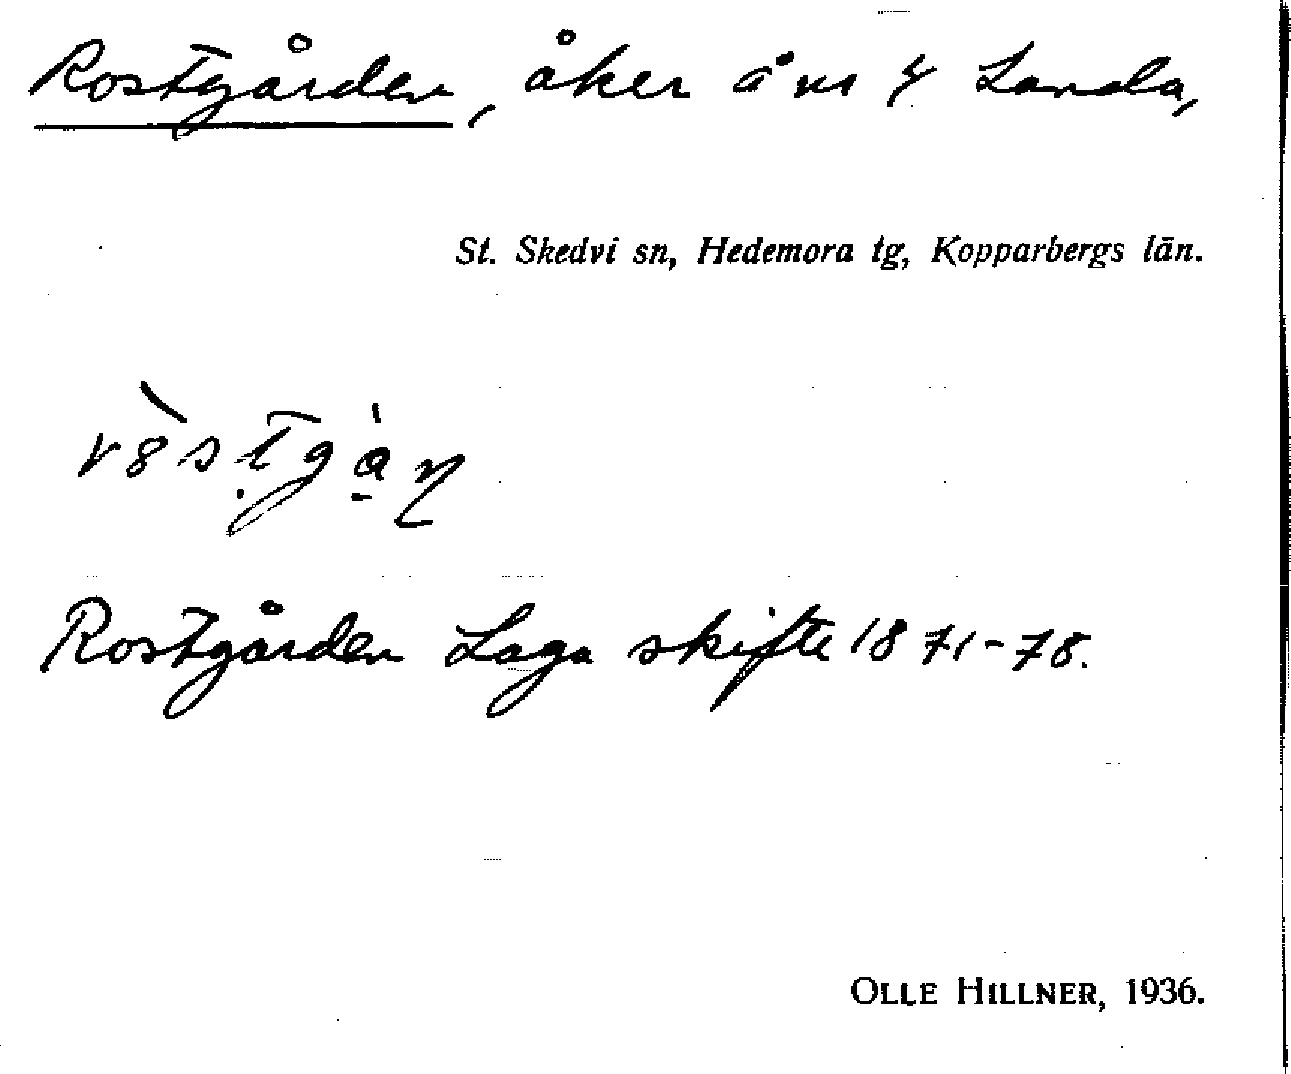 Rostgården, åker å nr 4 Landa,
St. Skedvi sn, Hedemora tg, Kopparbergs län.
Rostgården Laga skifte 1871-78.
OLLE HILLNER, 1936.